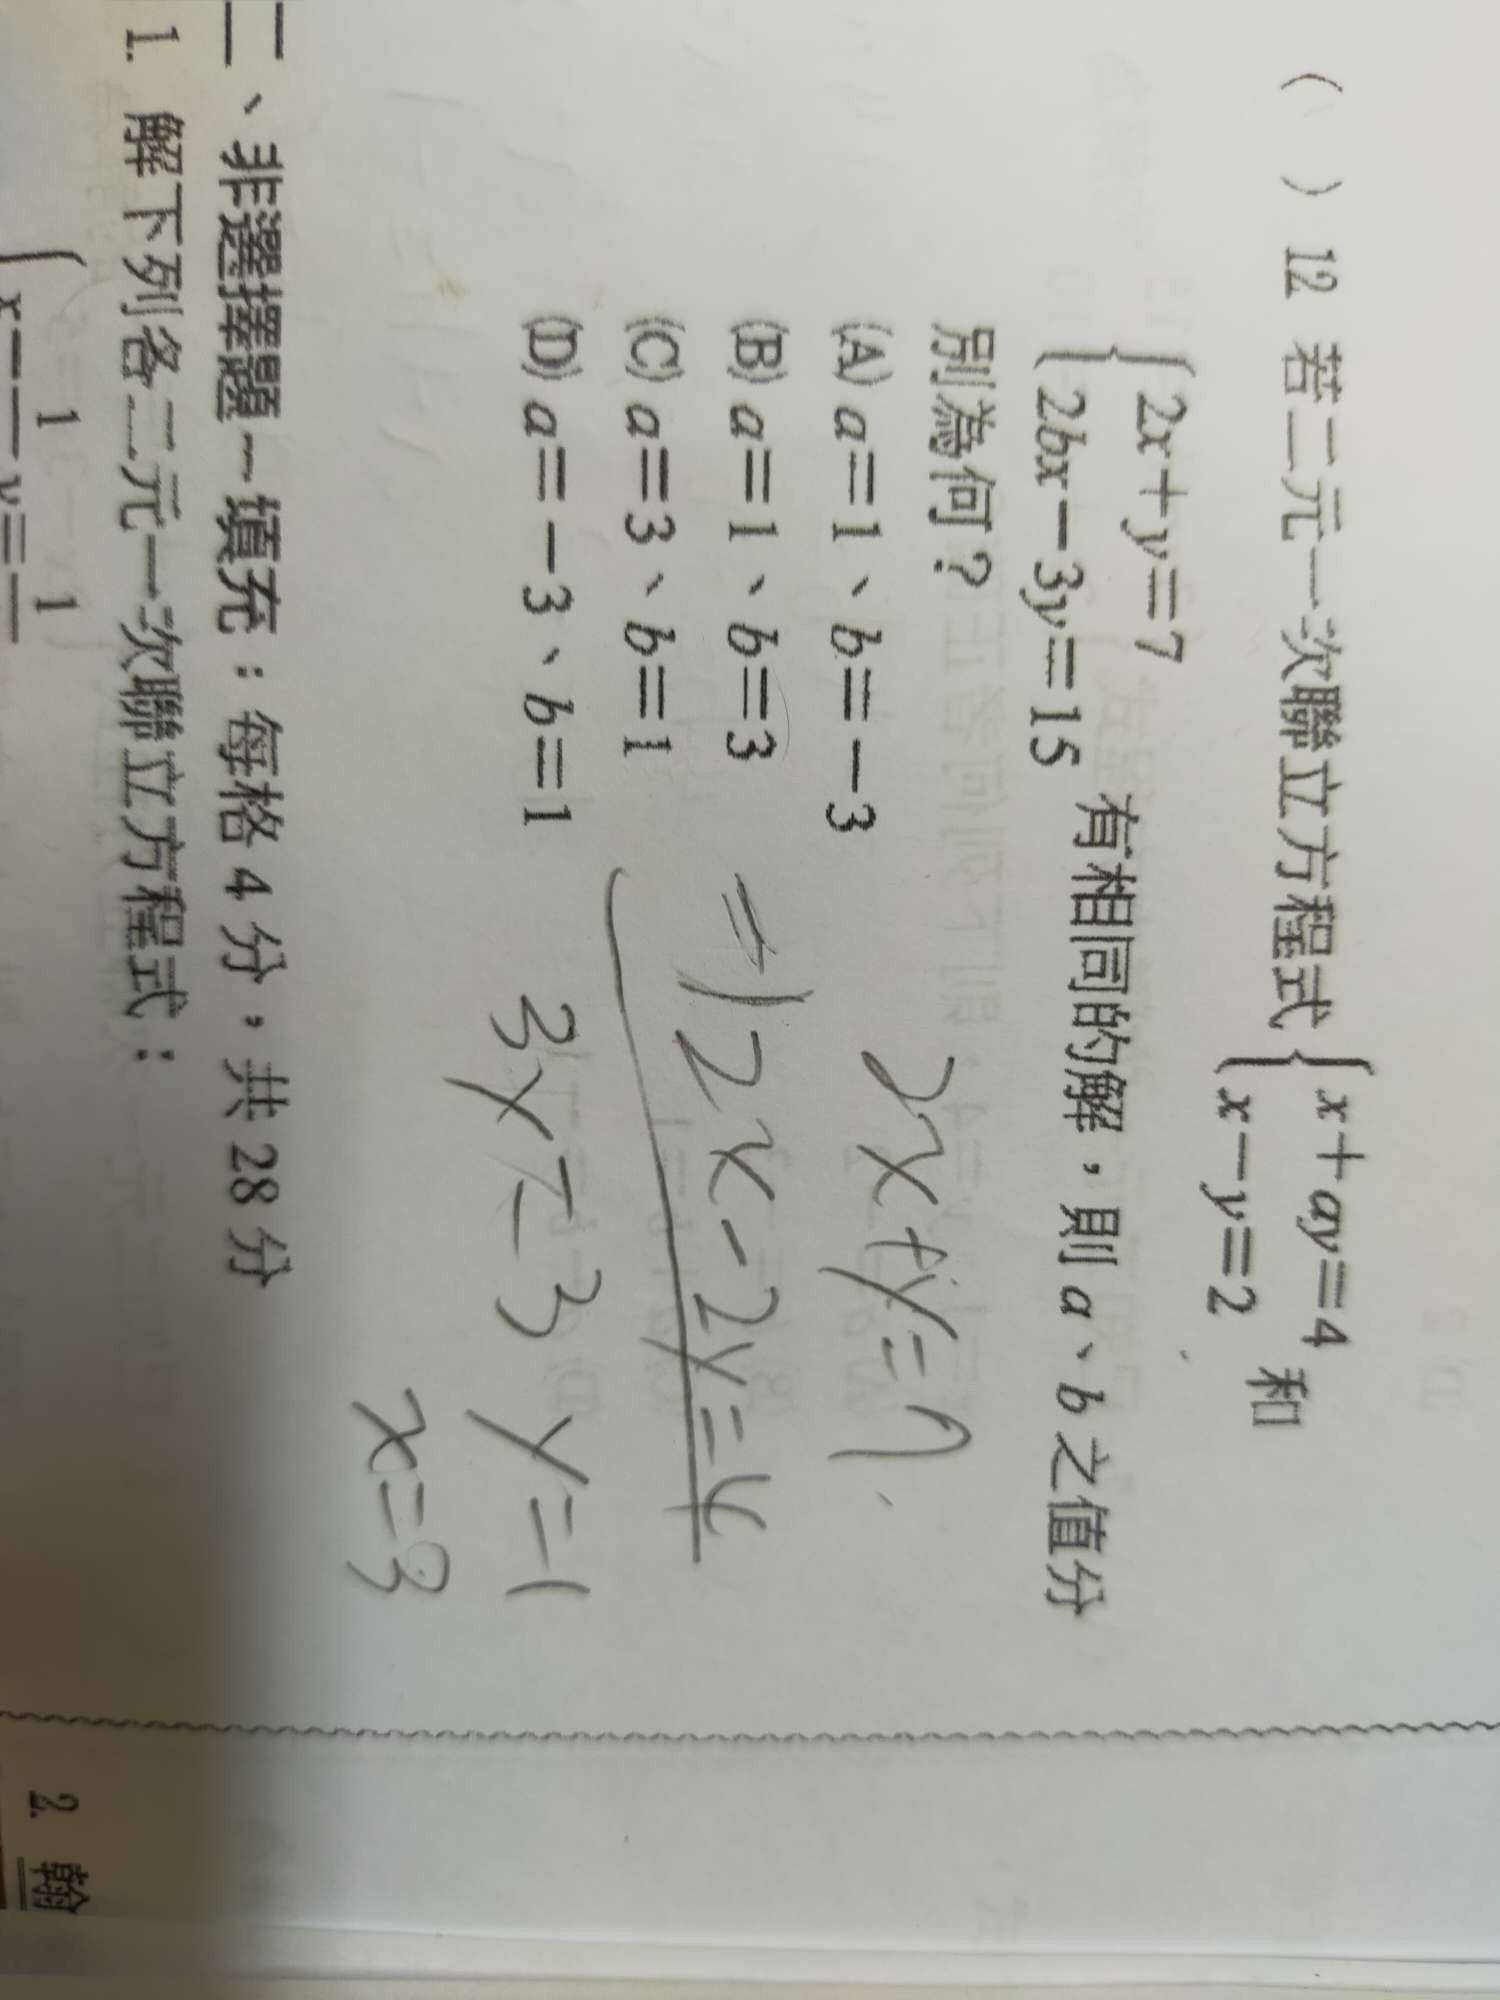 ( ) 12 若二元一次聯立方程式{x+ay=4 x-y=2 和
{2x+y=7 2bx-3y=15 有相同的解,則 a、b 之值分
別為何?
(A) a=1、b=-3
(B) a=1、b=3
(C) a=3、b=1
(D) a=-3、b=1
2x+y=7
-)2x-2y=4
3y=3 y=1
x=3
二、非選擇題—填充:每格 4 分,共 28 分
1. 解下列各二元一次聯立方程式:
2. 翰